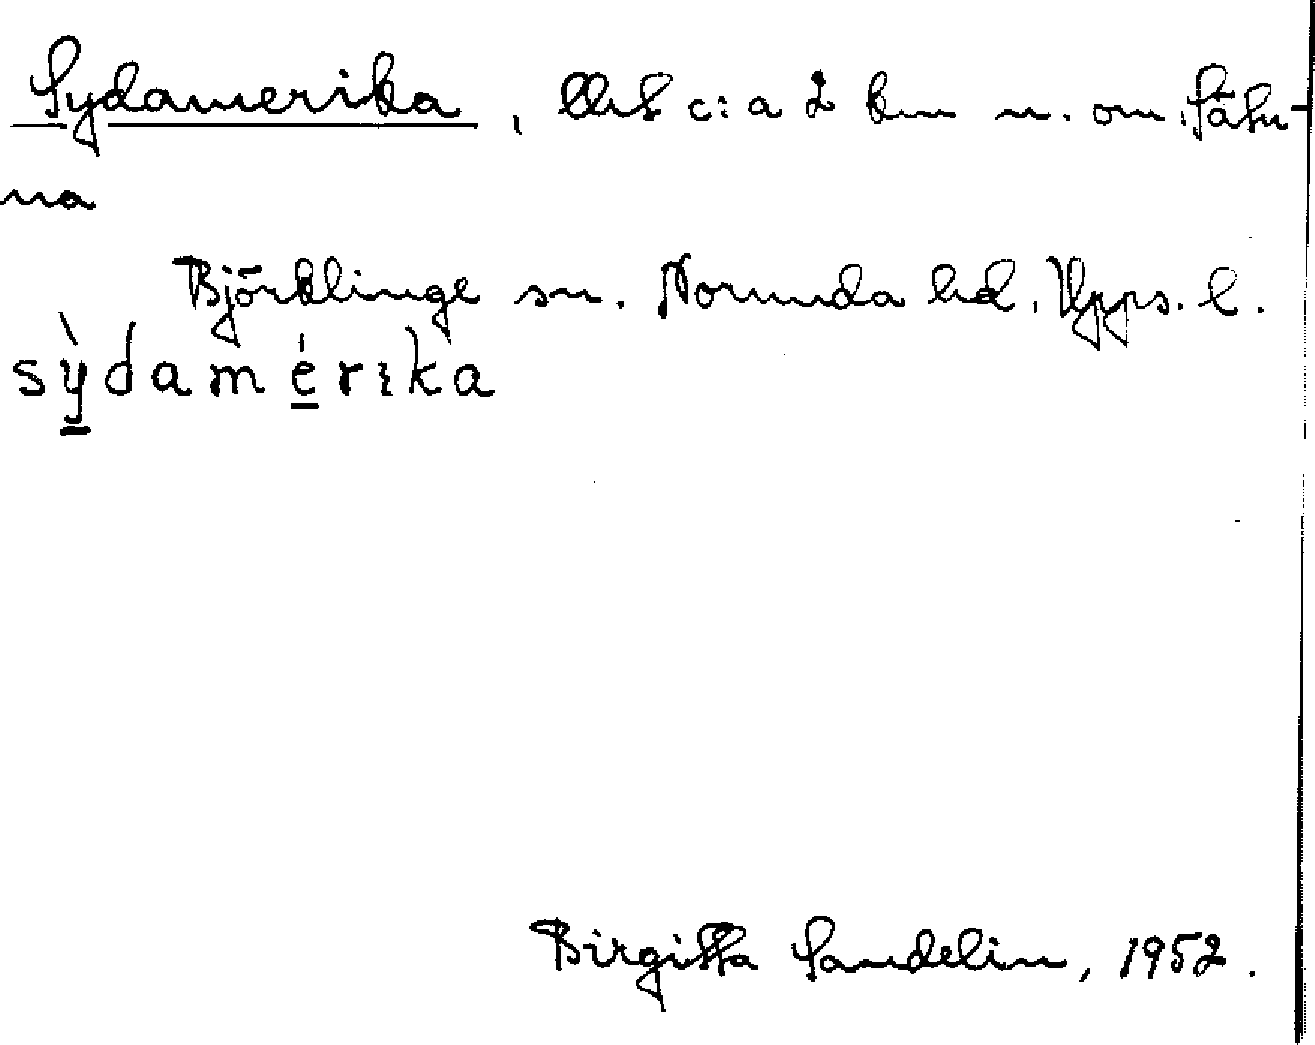 Sydamerika, c:a 2 km n. om Sätu-
na
Björklinge sn. Norunda hd, Upps. l.
sỳdamérika
Birgitta Sandelin, 1952.